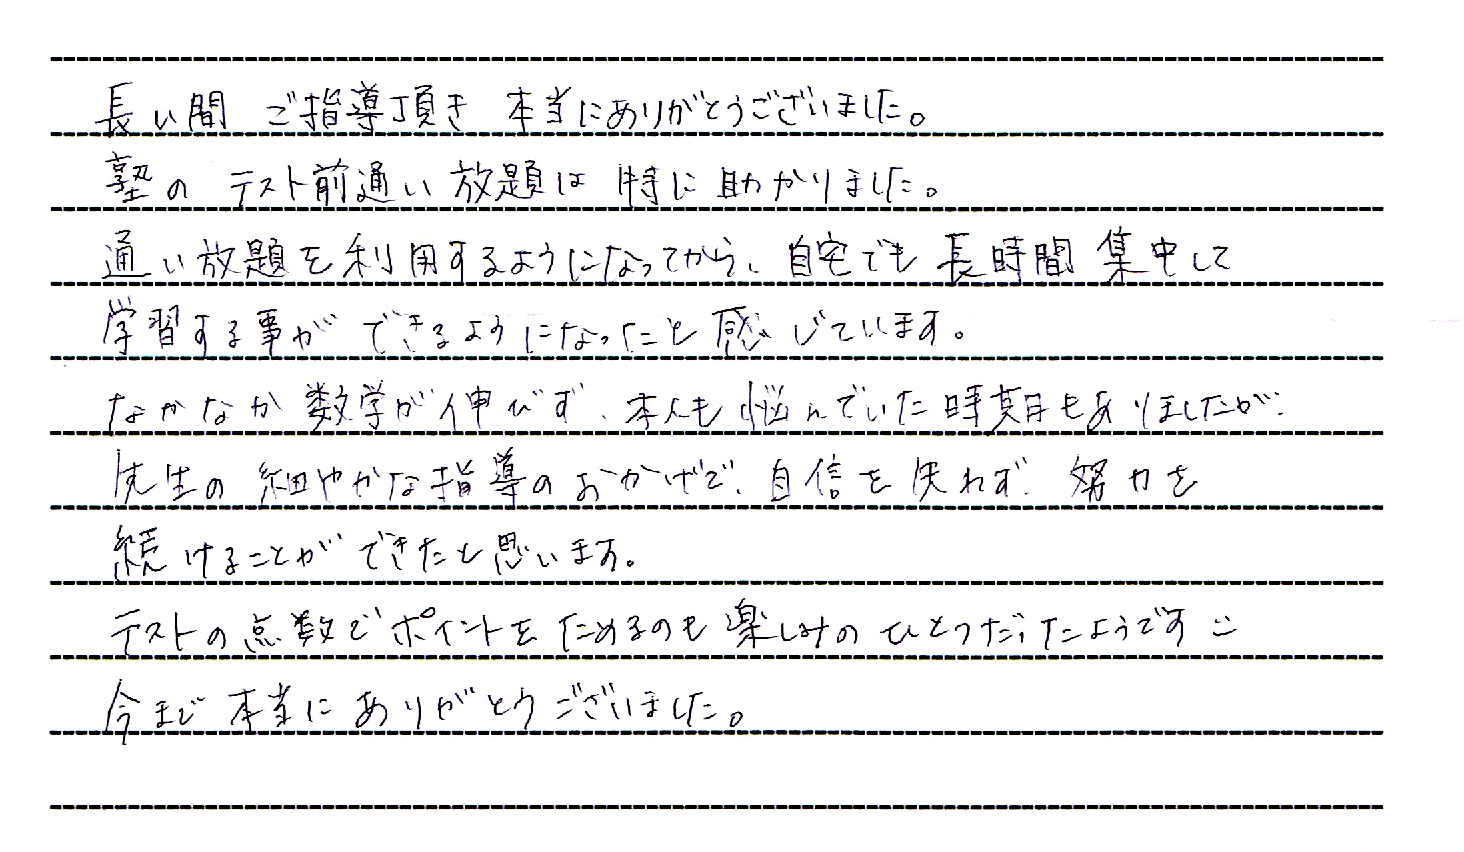 長い間 ご指導頂き 本当にありがとうございました。
塾の テスト前通い放題は 特に助かりました。
通い放題を利用するようになってから、自宅でも 長時間 集中して
学習する事が できるようになったと感じています。
なかなか 数学が伸びず、本人も 悩んでいた時期もありましたが、
先生の 細やかな指導の おかげで、自信を失わず、努力を
続けることが できたと思います。
テストの点数でポイントを ためるのも 楽しみの ひとつだったようです
今まで 本当に ありがとうございました。